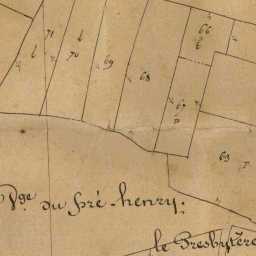 71
l
l
70
69
68
66
t
67
p
63
p
Vge du pré-henry.
le Presbytère